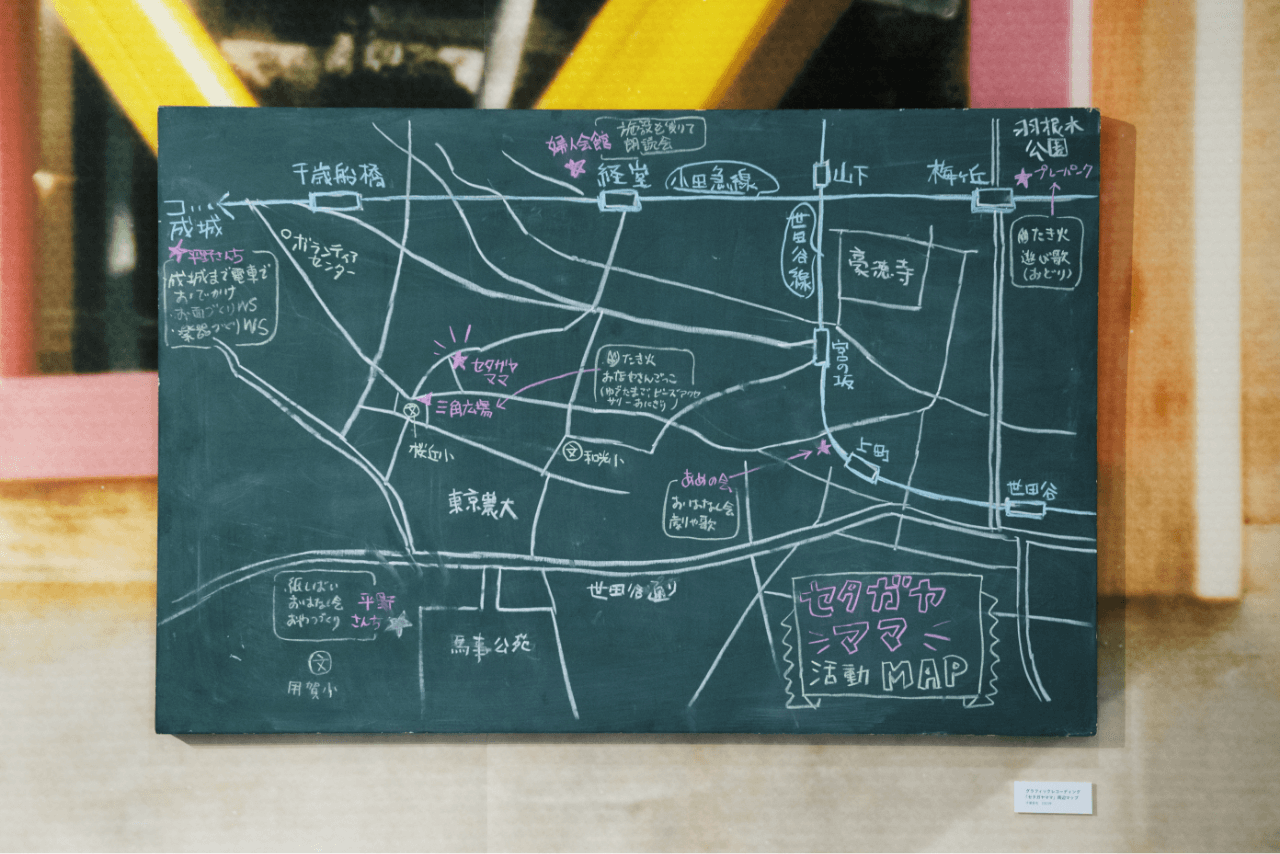 婦人会館
施設を使りて
朗読会
羽根木
公園
プレーパーク
千歳船橋
経堂
小田急線
山下
梅ヶ丘
コ…
成城
平野さんち
成城まで電車で
おでかけ
・お面づくりWS
・楽器づくりWS
ボランティア
センター
世田谷線
豪徳寺
たき火
遊び歌
(おどり)
宮の坂
セタガヤ
ママ
三角広場
たき火
お店やさんごっこ
(ゆでたまご、ビーズアクセ
サリー おにぎり)
文
桜丘小
文
和光小
東京農大
あめの会
おはなし会
劇や歌
上町
世田谷
世田谷通り
紙しばい
おはなし会
おやつづくり
平野
さんち
文
用賀小
馬事公苑
セタガヤ
ママ
活動 MAP
グラフィックレコーディング